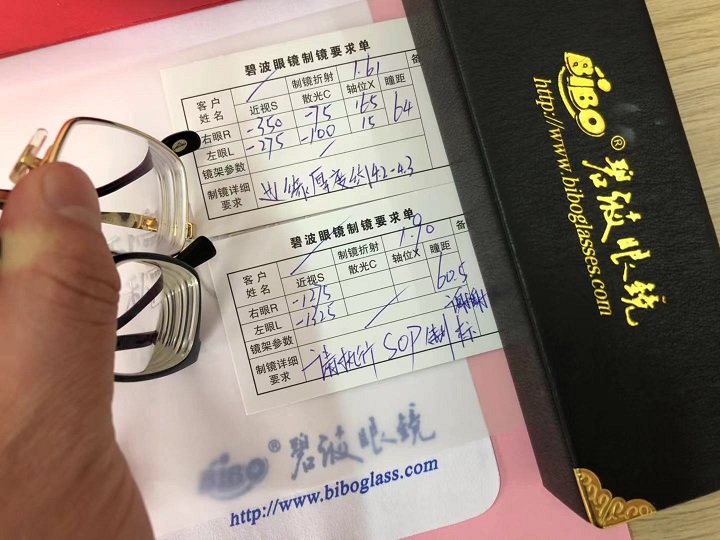 碧波眼镜制镜要求单
客户姓名 制镜折射 1.61 备
近视S 散光C 轴位X 瞳距
右眼R -350 -75 165 64
左眼L -275 -100 15
镜架参数
制镜详细要求 边缘厚度约4.2-4.3
碧波眼镜制镜要求单
客户姓名 制镜折射 1.90 备
近视S 散光C 轴位X 瞳距
右眼R -1275 60.5
左眼L -1325
镜架参数
制镜详细要求 请执行SOP制标 谢谢
BiBO® 碧波眼镜
http://www.biboglass.com
BiBO® 碧波眼镜
http://www.biboglasses.com